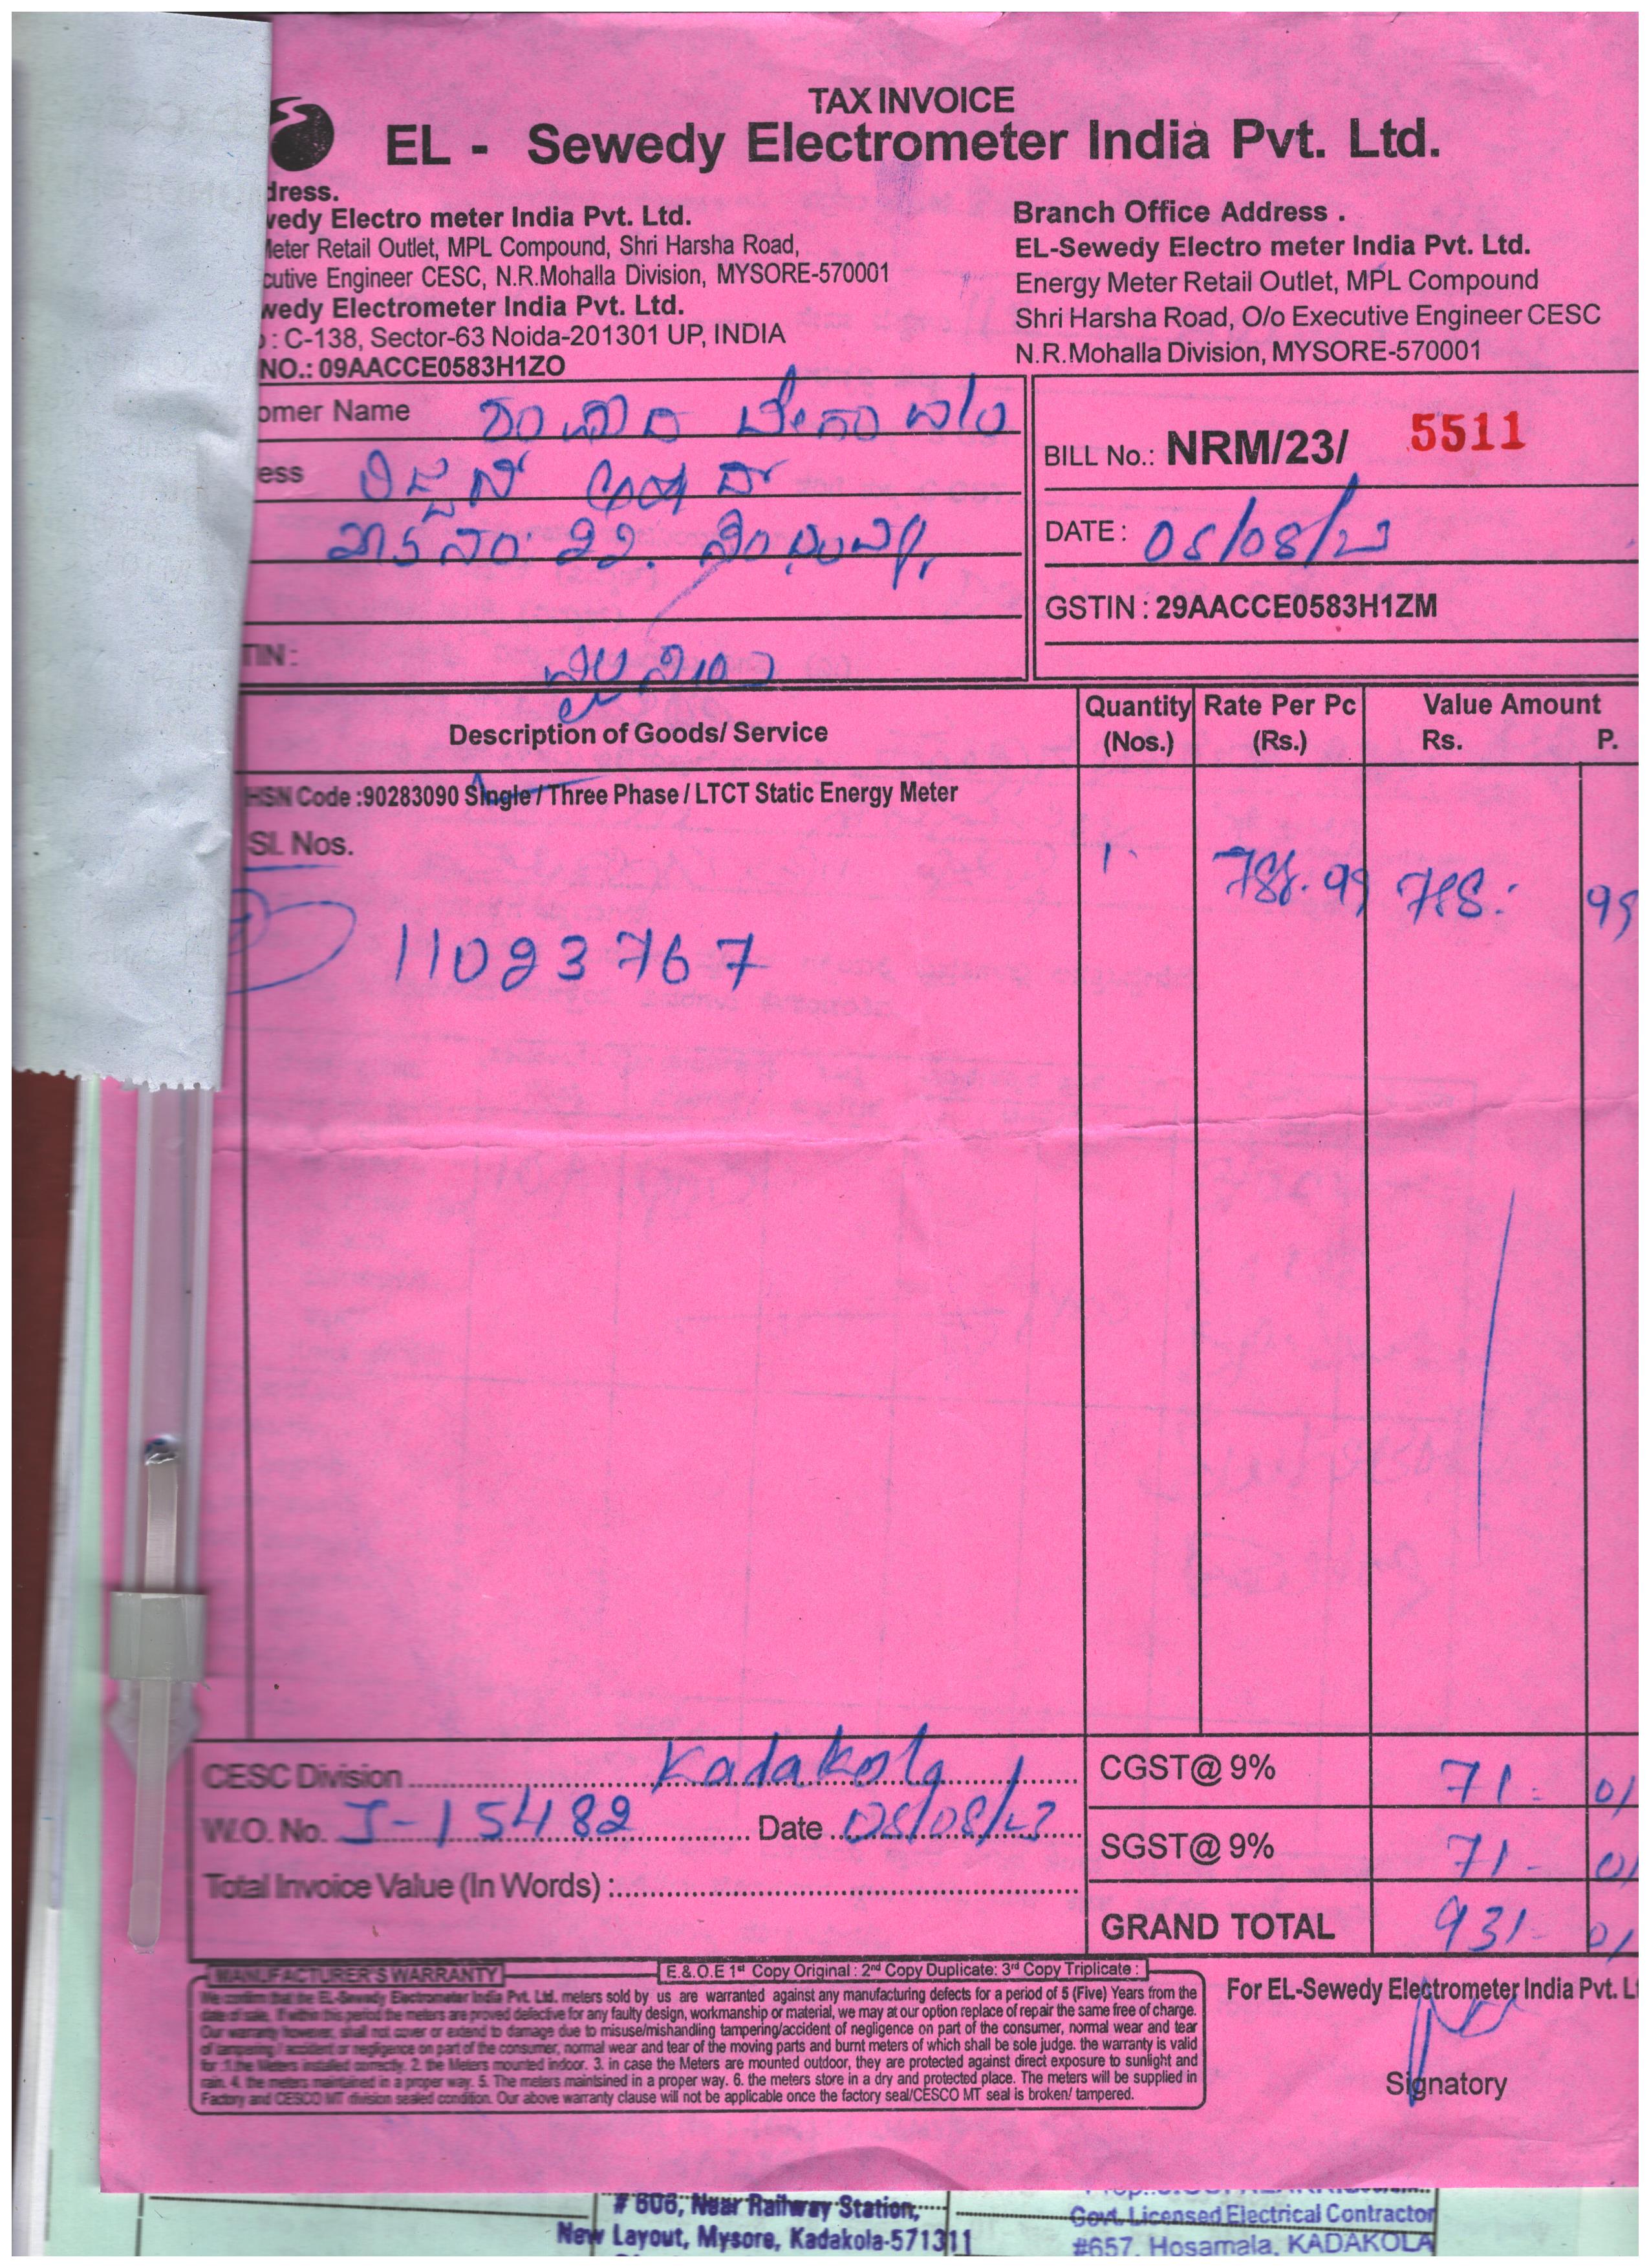 TAX INVOICE
EL - Sewedy Electrometer India Pvt. Ltd.
dress.
wedy Electro meter India Pvt. Ltd.
Meter Retail Outlet, MPL Compound, Shri Harsha Road,
cutive Engineer CESC, N.R.Mohalla Division, MYSORE-570001
wedy Electrometer India Pvt. Ltd.
: C-138, Sector-63 Noida-201301 UP, INDIA
NO.: 09AACCE0583H1ZO
Branch Office Address .
EL-Sewedy Electro meter India Pvt. Ltd.
Energy Meter Retail Outlet, MPL Compound
Shri Harsha Road, O/o Executive Engineer CESC
N.R.Mohalla Division, MYSORE-570001
omer Name
ess
22.
TIN :
BILL No.: NRM/23/ 5511
DATE : 05/08/23
GSTIN : 29AACCE0583H1ZM
Description of Goods/ Service Quantity (Nos.) Rate Per Pc (Rs.) Value Amount Rs. P.
HSN Code :90283090 Single / Three Phase / LTCT Static Energy Meter
Sl. Nos.
1 788.99 788. 99
11023767
CESC Division Kadakola
W.O. No. J-15482 Date 05/08/23
Total Invoice Value (In Words) :
CGST@ 9% 71 - 01
SGST@ 9% 71 - 01
GRAND TOTAL 931 - 01
MANUFACTURER'S WARRANTY E.&.O.E 1st Copy Original : 2nd Copy Duplicate: 3rd Copy Triplicate :
We confirm that the EL-Sewedy Electrometer India Pvt. Ltd. meters sold by us are warranted against any manufacturing defects for a period of 5 (Five) Years from the
date of sale. If within this period the meters are proved defective for any faulty design, workmanship or material, we may at our option replace of repair the same free of charge.
Our warranty however, shall not cover or extend to damage due to misuse/mishandling tampering/accident of negligence on part of the consumer, normal wear and tear
of tampering / accident or negligence on part of the consumer, normal wear and tear of the moving parts and burnt meters of which shall be sole judge. the warranty is valid
for :1.the Meters installed correctly. 2. the Meters mounted indoor. 3. in case the Meters are mounted outdoor, they are protected against direct exposure to sunlight and
rain. 4. the meters maintained in a proper way. 5. The meters maintsined in a proper way. 6. the meters store in a dry and protected place. The meters will be supplied in
Factory and CESCO MT division sealed condition. Our above warranty clause will not be applicable once the factory seal/CESCO MT seal is broken/ tampered.
For EL-Sewedy Electrometer India Pvt. Lt
Signatory
# 606, Near Railway Station,
New Layout, Mysore, Kadakola-571311
Govt. Licensed Electrical Contractor
#657, Hosamala, KADAKOLA